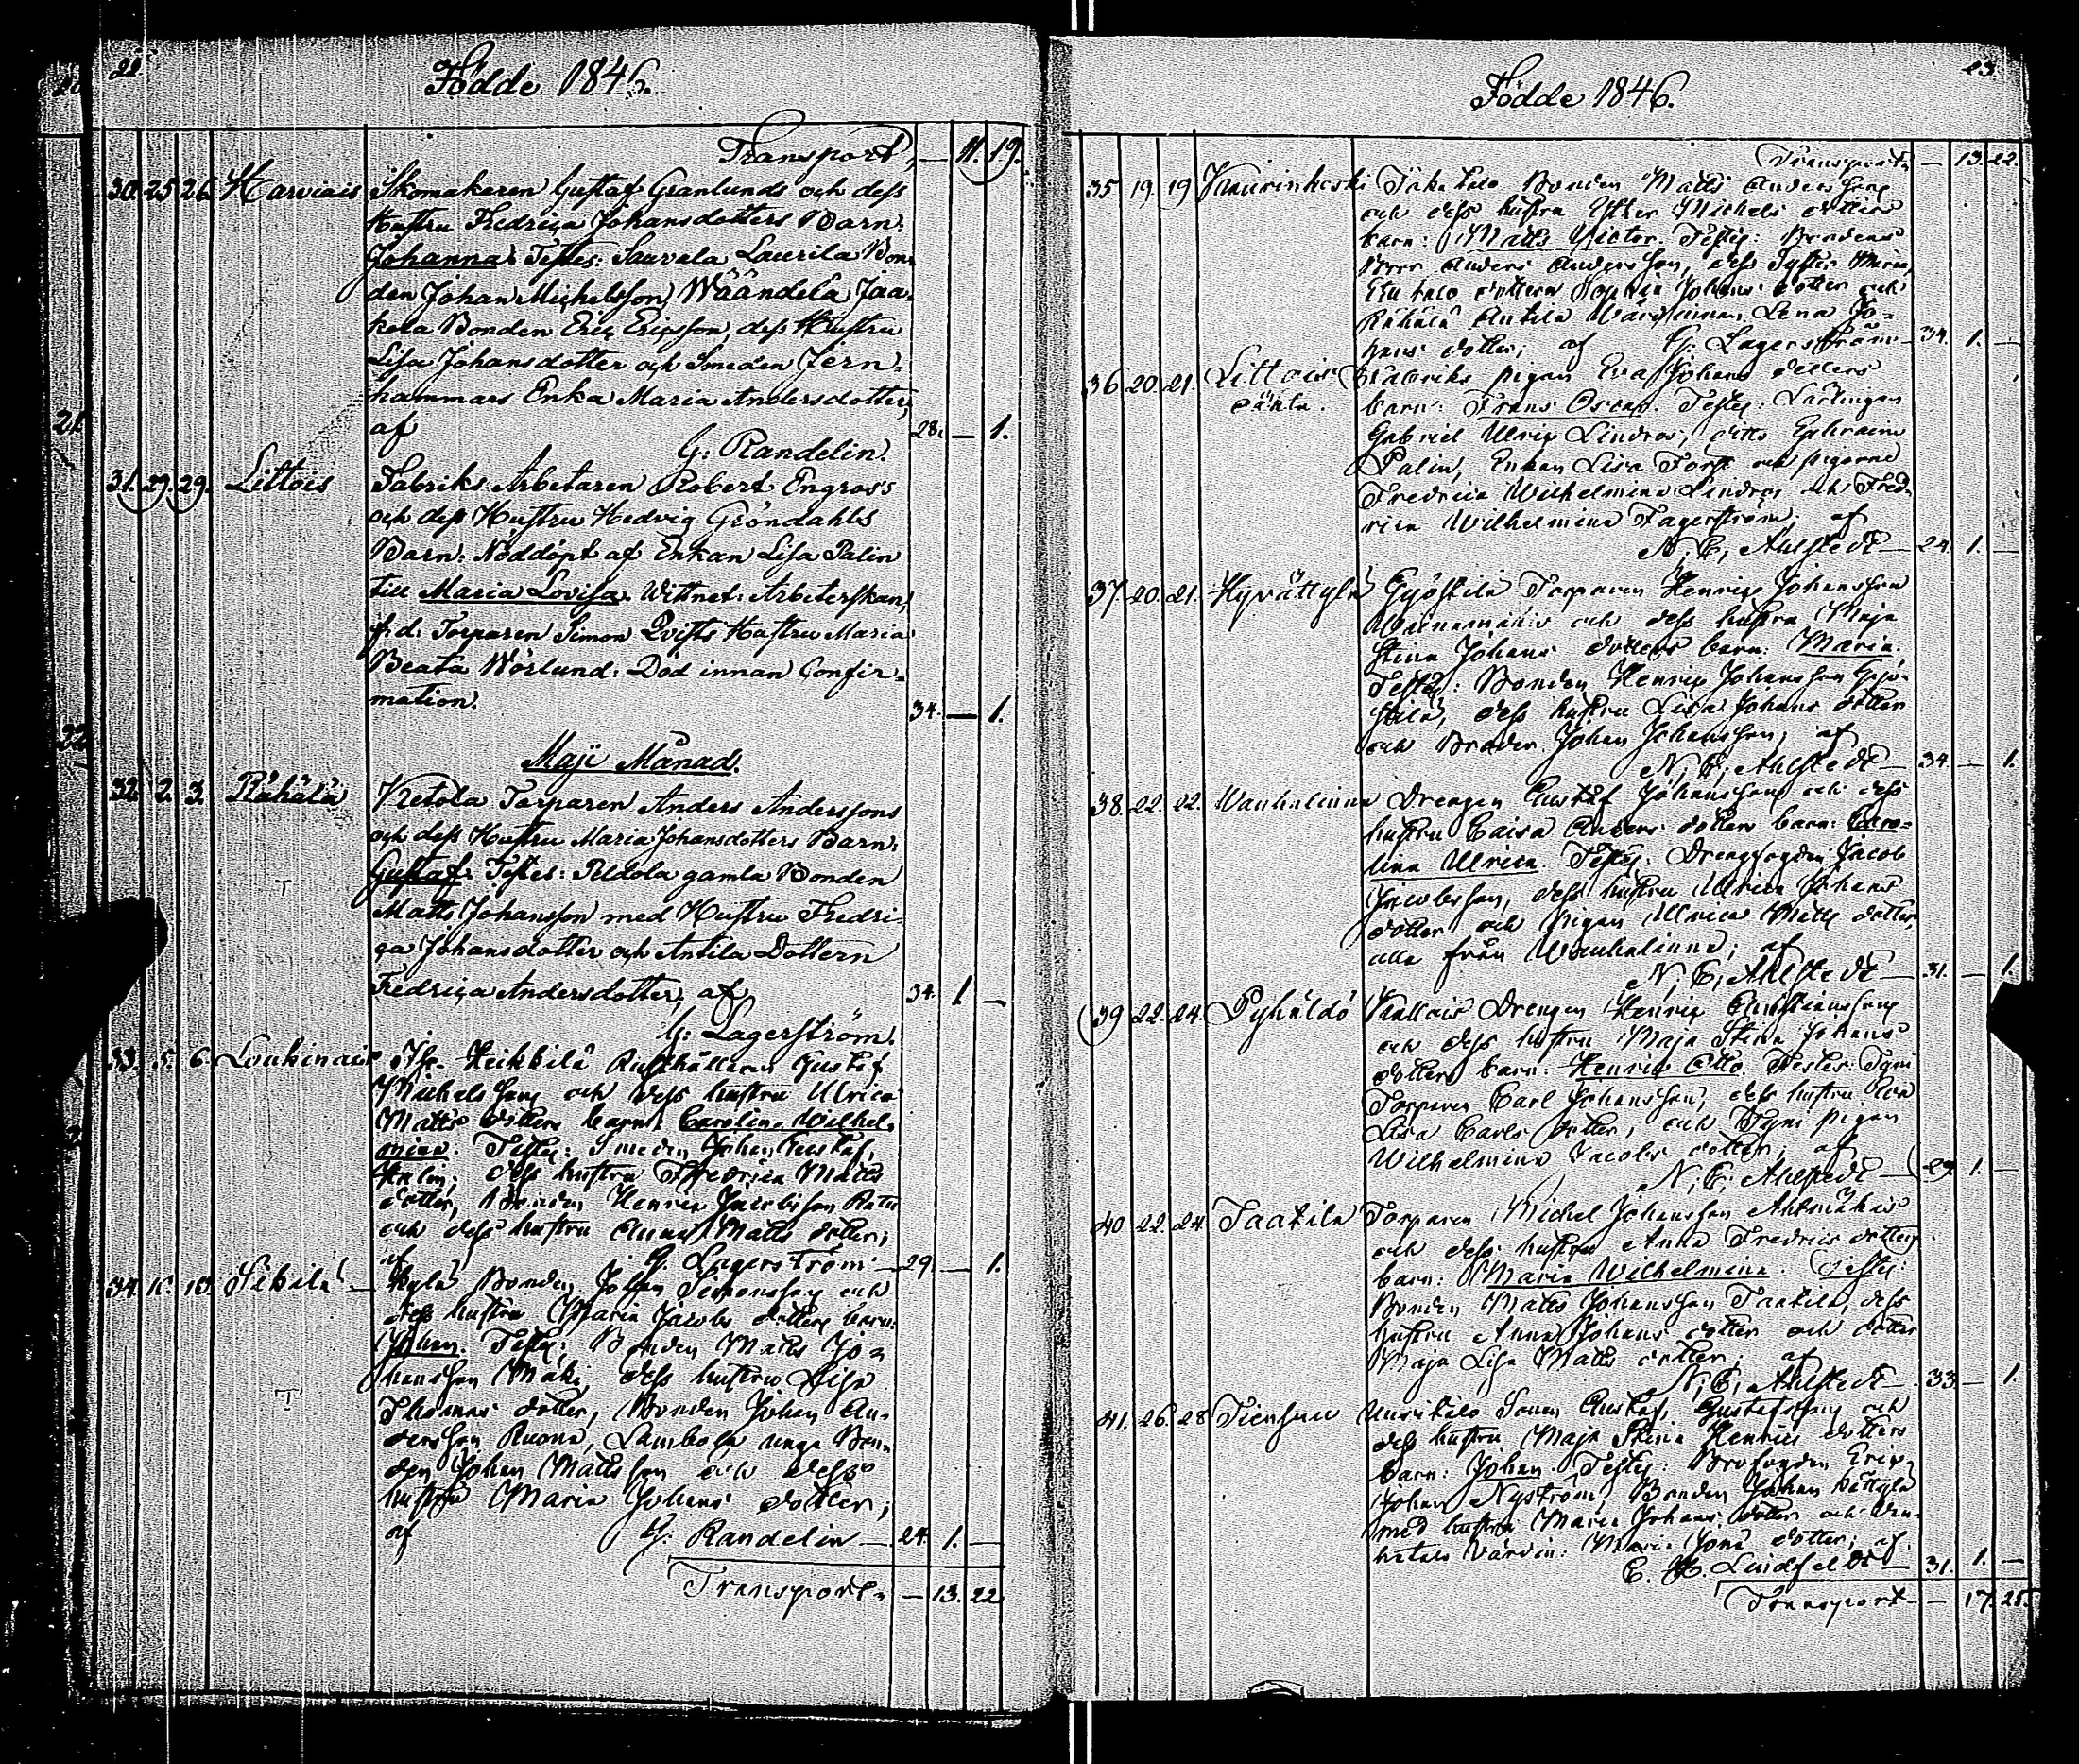 22.
Födde 1846.
Transport, — 11. 19.
30. 25 26. Harviais Skomakaren Gustaf Granlunds och dess
Hustru Fredrica Johansdotters Barn:
Johanna. Testes: Sauvala Laurila Bon-
den Johan Michelsson, Wäändelä Jaa-
kola Bonden Eric Ericsson, dess Hustru
Lisa Johansdotter och Smeden Jern-
hammars Enka Maria Andersdotter,
af 28. — 1.
G: Randelin.
31. 29. 29. Littois Fabriks Arbetaren Robert Engros's
och dess Hustru Hedvig Gröndahls
Barn: Nöddöpt af Enkan Lisa Palin
till Maria Lovisa. Wittnet: Arbeterskan,
f: d: Torparen Simon Qvists Hustru Maria
Beata Nörlund: Död innan Confir-
mation. 34. — 1.
Maji Månad.
32. 2. 3. Rähälä Ketola Torparen Anders Anderssons
och dess Hustru Maria Johansdotters Barn:
Gustaf. Testes: Peldola gamla Bonden
Matts Johansson med Hustru Fredri-
ca Johansdotter och Antila Dottern
Fredrica Andersdotter; af 34. 1 —
G: Lagerström.
33. 5. 6. Loukinais Heikkilä Rusthållaren Gustaf
Michelssons och dess hustru Ulrica
Matts dotters barn: Carolina Wilhel-
mina. Testes: Smeden Johan Gustaf
dess hustru Fredrica Matts
dotter, Bonden Henric Jacobsson
och dess hustru Anna Matts dotter;
af G. Lagerström — 29 — 1.
34. 10. Sikilä — Bonden Johan Simonsson och
dess hustru Maria Jacobs dotters barn:
Johan. Testes: Bonden Matts Jo-
hansson Mäki, dess hustru Lisa
Thomas dotter, Bonden Johan An-
dersson Ruona, Lambola unga Bon-
den Johan Mattsson och dess
hustru Maria Johans dotter;
af G. Randelin — 24. 1. —
Transport. — 13. 22
23.
Födde 1846.
Transport, — 13. 22.
35 19. 19 Bonden Matts Anderssons
och dess hustru Esther Michels dotters
barn: Matts Victor. Testes: Bondens
Bror Anders Andersson, dess Syster Maria,
dottern Johans dotter och
Rähälä Antila Lena Jo-
hans dotter; af G. Lagerström — 34. 1. —
36 20. 21. Littois Fabriks pigan Eva Johans dotters
barn: Frans Oscar. Testes: Lärlingen
Gabriel Ulric Lindros, ditto Ephraim
Palin, Enkan Lisa Fors och pigorna
Fredrica Wilhelmina Lindros och Fred-
rica Wilhelmina Fagerström; af
N. E. Ahlstedt — 24. 1. —
37. 20. 21. Hyvättylä Gyöstilä Torparen Henric Johansson
och dess hustru Maja
Stina Johans dotters barn: Maria.
Testes: Bonden Henric Johansson Gyö-
stilä, dess hustru Lisa Johans dotter
och Brodern Johan Johansson; af
N. E. Ahlstedt — 34. — 1.
38. 22. 22. Wanhalinna Drengen Gustaf Johanssons och dess
hustru Caisa Anders dotters barn: Caro-
lina Ulrica. Testes: Drengfogden Jacob
Jacobsson, dess hustru Ulrica Johans
dotter och Pigan Ulrica Matts dotter,
alla från Wanhalinna; af
N. E. Ahlstedt — 31. — 1.
39 22. 24. Pyhäldö Drengen Henric Christianssons
och dess hustru Maja Stina Johans
dotters barn: Henric Otto. Testes:
Torparen Carl Johansson, dess hustru Eva
Lisa Carls dotter, och pigan
Wilhelmina Jacobs dotter; af
N. E. Ahlstedt — 29 1. —
40 22. 24 Taatila Torparen Michel Johansson
och dess hustru Anna Fredrics dotters
barn: Maria Wilhelmina. Testes:
Bonden Matts Johansson Taatila, dess
hustru Anna Johans dotter och dotter
Maja Lisa Matts dotter; af
N. E. Ahlstedt — 33. — 1.
41. 26. 28 Tiensuu Uusitalo Sonen Gustaf Gustafssons och
dess hustru Maja Stina Henrics dotters
barn: Johan. Testes: Brofogden Eric
Johan Nyström, Bonden Johan
med hustru Maria Johans dotter och
Maria dotter; af
Lindfeldt — 31. 1. —
Transport — 17. 25.